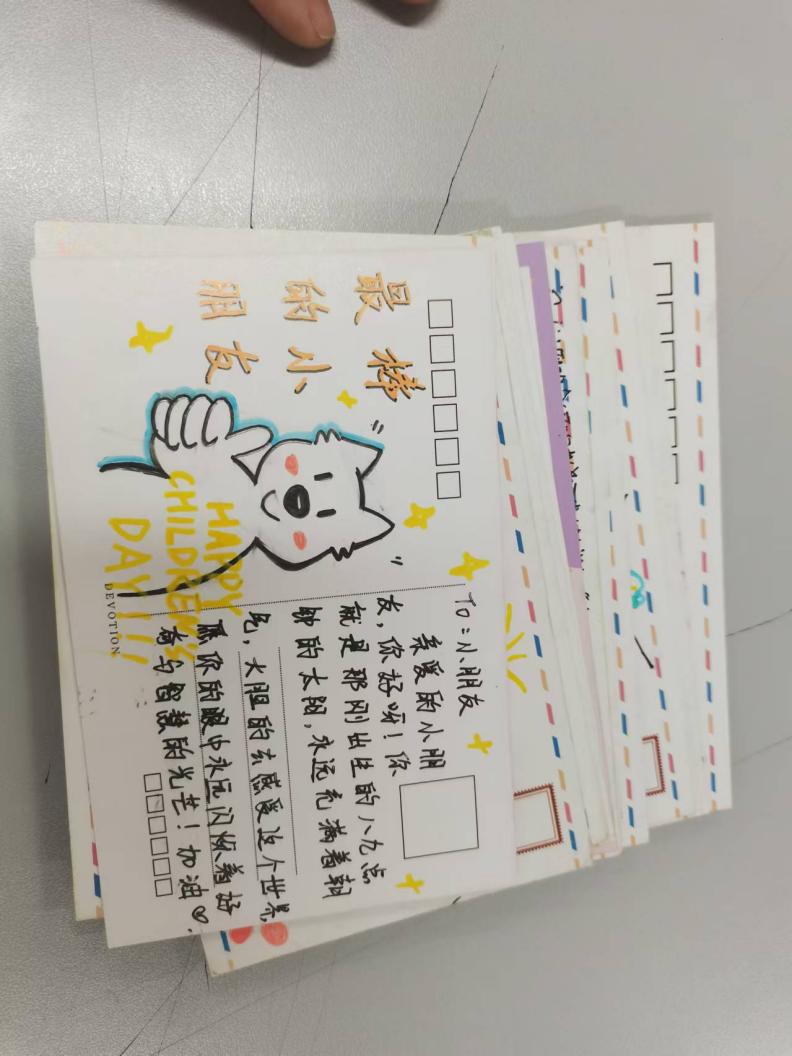 最棒
的小
朋友
HAPPY
CHILDREN'S
DAY!!!
DEVOTION
TO:小朋友
亲爱的小朋
友，你好呀！你
就是那刚出生的八九点
钟的太阳，永远充满着朝
气，大胆的去感受这个世界，
愿你的眼中永远闪烁着好
奇与智慧的光芒！加油♡.